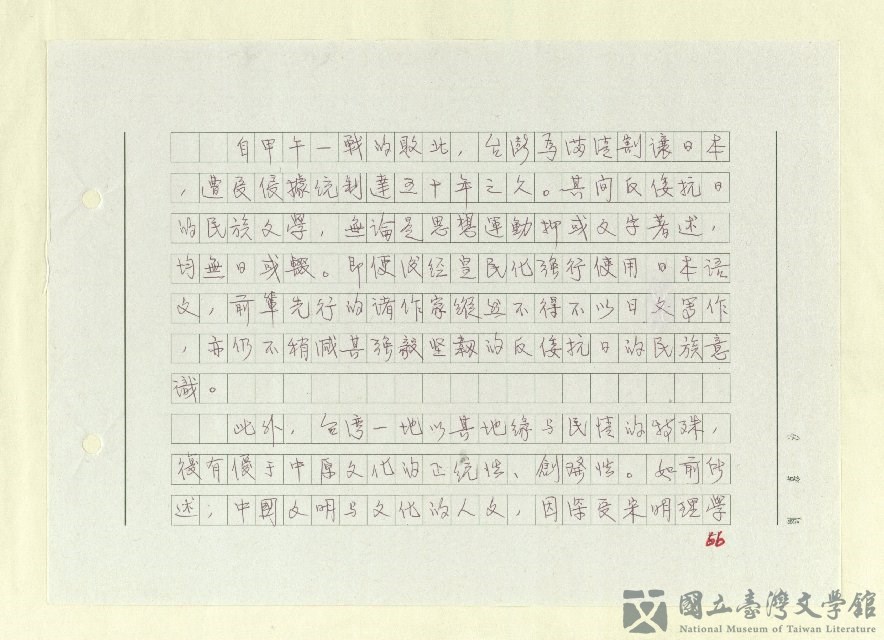 自甲午一戰的敗北，台澎為滿清割讓日本
，遭受侵據統制達五十年之久。其间反倭抗日
的民族文學，無論是思想運動抑或文字著述，
均無日或輟。即便後经皇民化强行使用日本語
文，前輩先行的诸作家縱迫不得不以日文写作
，亦仍不稍減其强毅坚韌的反倭抗日的民族意
識。
此外，台湾一地以其地缘与民情的特殊，
後有優于中原文化的正統性、創
性。如前所
述；中國文明与文化的人文，因深受宋明理學
66
國立臺灣文學館
National Museum of Taiwan Literature